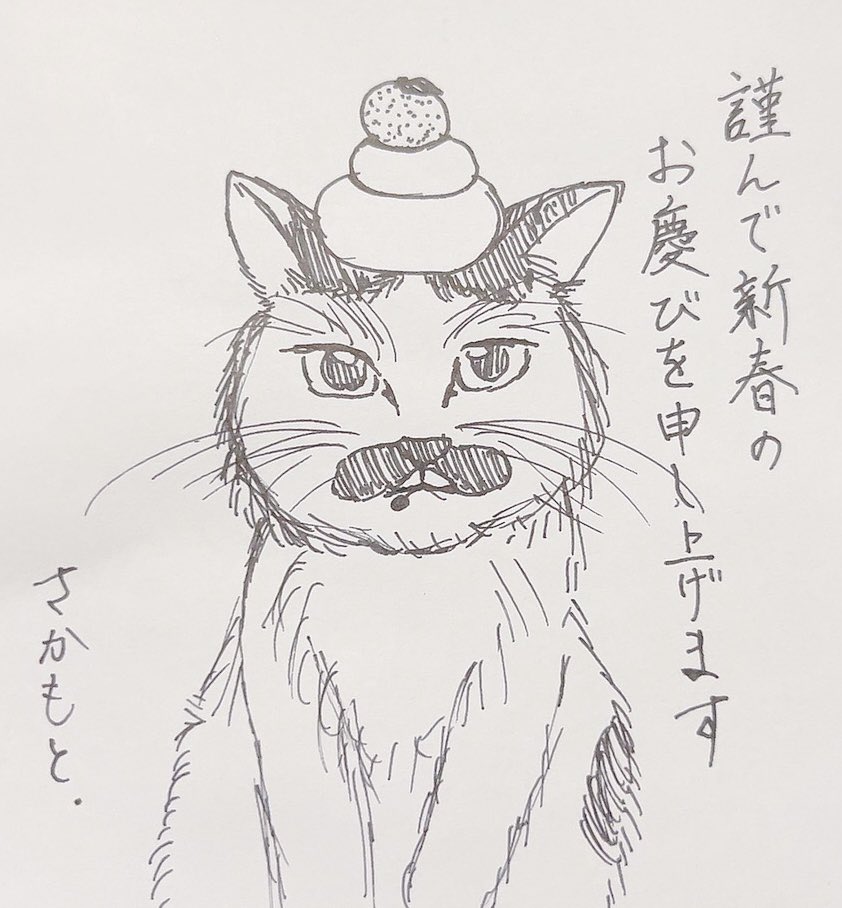 謹んで新春の
お慶びを申し上げます
さかもと.